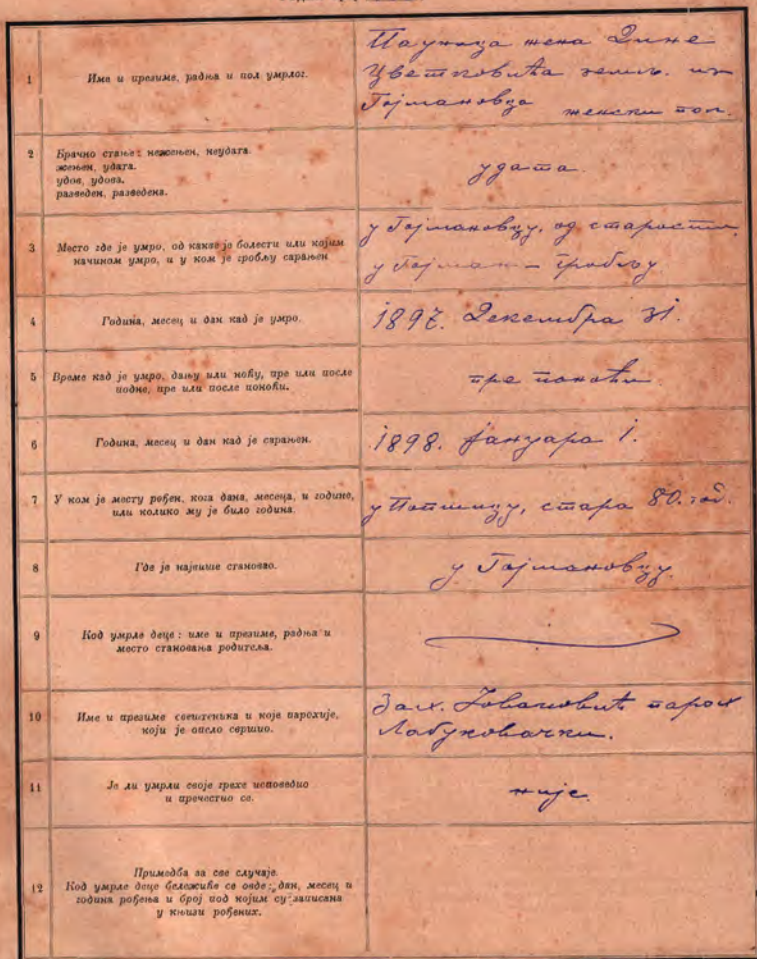 1
Име и презиме, радња и пол умрлог.
Паунаца жена Дине
Цветковића земљ. из
Гојмановца женски пол.
2
Брачно стање: нежењен, неудата.
жењен, удата.
удов, удова.
разведен, разведена.
удата.
3
Место где је умро, од какве је болести или којим
начином умро, и у ком је гробљу сарањен
у Гојмановцу, од старости
у Гојман – гробљу
4
Година, месец и дан кад је умро.
1897. Декембра 31.
5
Време кад је умро, дању или ноћу, пре или после
подне, пре или после поноћи.
пре поноћи
6
Година, месец и дан кад је сарањен.
1898. Јануара 1.
7
У ком је месту рођен, кога дана, месеца, и године,
или колико му је било година.
у стара 80. год.
8
Где је највише становао.
у Гојмановцу.
9
Код умрле деце: име и презиме, радња и
место становања родитеља.
10
Име и презиме свештеника и које парохије,
који је опело свршио.
Зах. Јовановић парох
Лабуковачки.
11
Је ли умрли своје грехе исповедио
и причестио се.
није.
12
Примедба за све случаје.
Код умрле деце бележиће се овде: дан, месец и
година рођења и број под којим су записана
у књизи рођених.